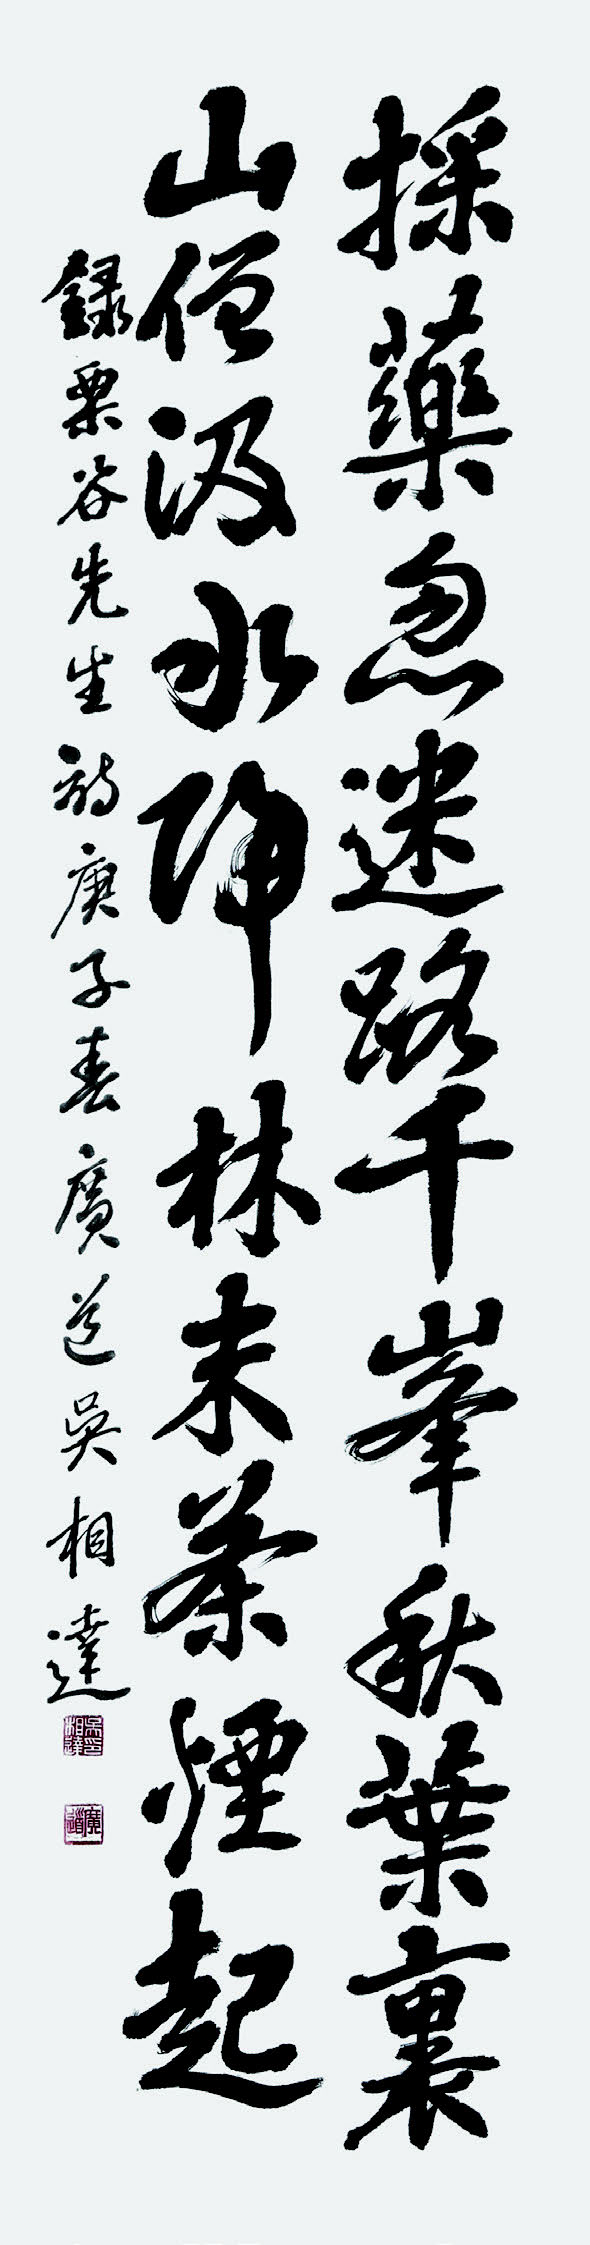 採藥忽迷路千峯秋葉裏
山僧汲水歸林末茶煙起
錄栗谷先生詩庚子春廣道吳相達
吳相達印
廣道